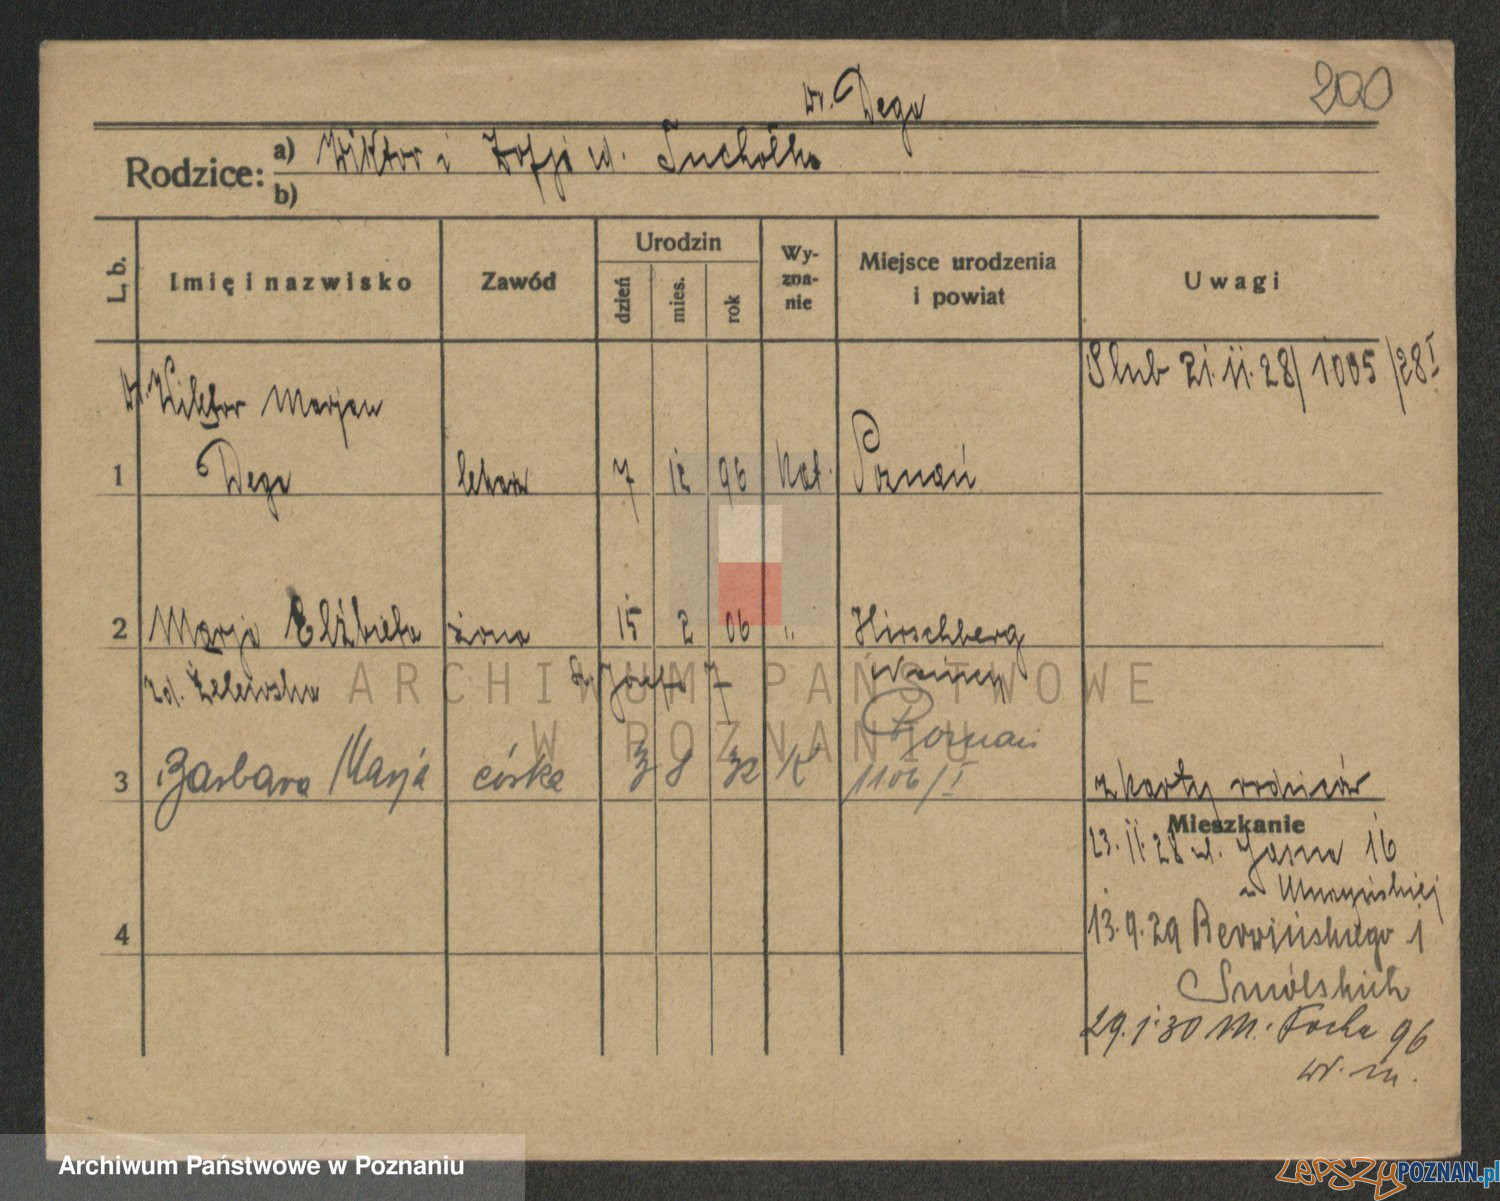 200
Dr. Dega
Rodzice: a) Wiktor i Zofja u. Tuchołka
b)
L. b.
Imię i nazwisko
Zawód
Urodzin
dzień
mies.
rok
Wy-
zna-
nie
Miejsce urodzenia
i powiat
Uwagi
Ślub 21.11.28/1005/28 I
Dr. Wiktor Marjan
1 Dega lekarz 7 12 96 kat. Poznań
2 Marja Elżbieta żona 15 2 06 " Hirschberg
zd. Zelewska Niemcy
Poznań
3 Barbara Marja córka 3 8 32 K 1106/I
z karty rodziców
Mieszkanie
23.11.28 ul. Jasna 16
u
13.9.29 Berwińskiego 1
Smólskich
4
29.1.30 M. Focha 96
wł. m.
ARCHIWUM PAŃSTWOWE
W POZNANIU
Archiwum Państwowe w Poznaniu
LEPSZYPOZNAN.pl